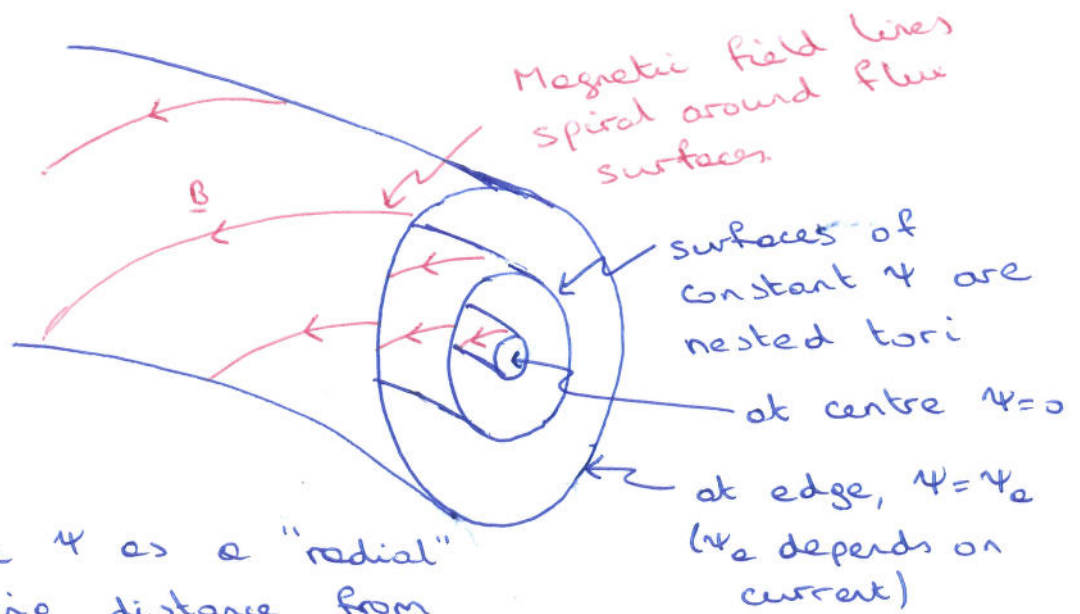 Magnetic field lines
spiral around flux
surfaces.
B
surfaces of
constant Ψ are
nested tori
at centre Ψ=0
at edge, Ψ=Ψa
(Ψa depends on
current)
Ψ as a "radial"
distance from